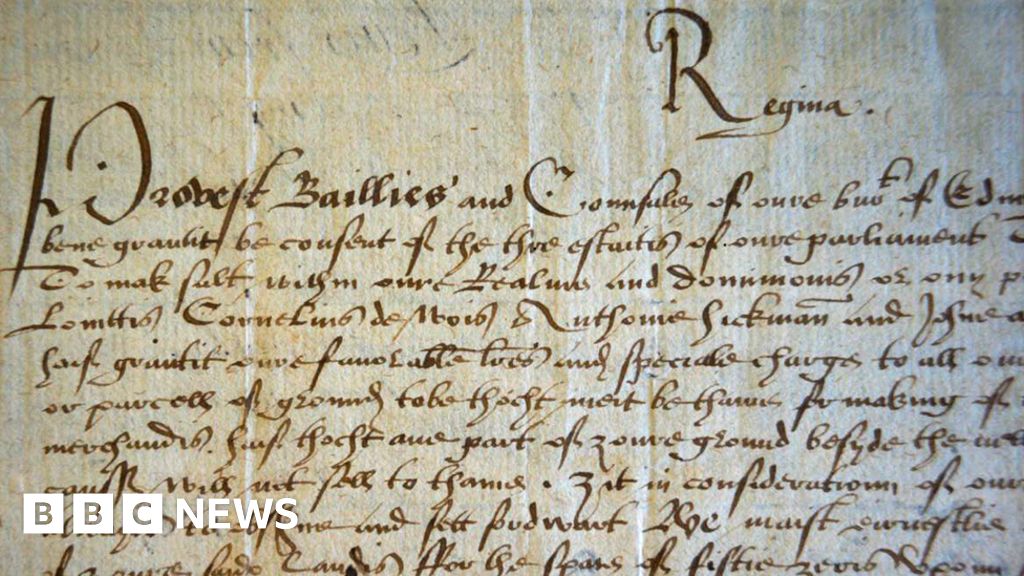 Regina.
Provest Baillies and Counsale of oure burt of Edin
bene grantit be consent of the thre estaitis of oure parliament
To mak salt within oure Realme and dominionis or ony p
Cornelius de Anthonie hickman and Johne
haif grantit oure favorable lres and speciale charge to all our
or parcell of ground tobe thocht meit be thame for making of
merchandis. haif thocht ane part of zoure ground besyde the
will not sell to thame. zit in consideratioun of our
BBC NEWS
and sett fordwart We maist ernestlie
of zoure said Landis ffor the space of fiftie zeris